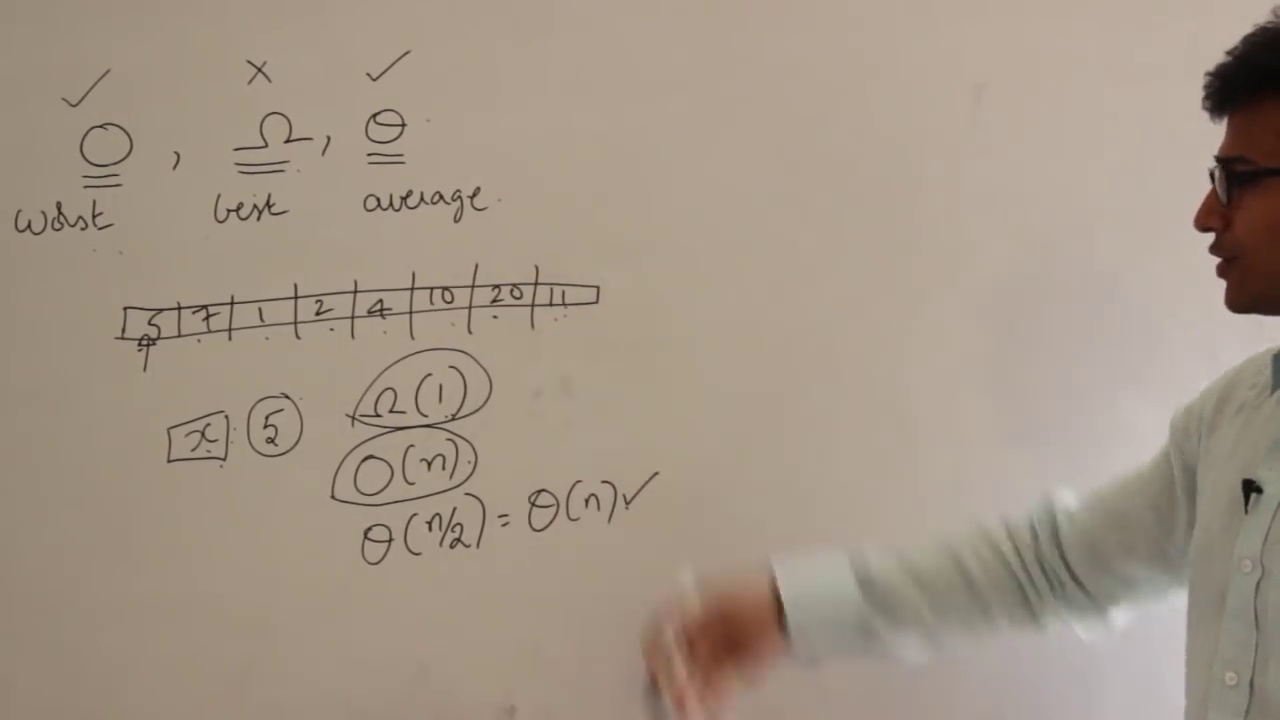 ✓ × ✓
O , Ω , θ
worst best average
5 7 1 2 4 10 20 11
x : 5 Ω(1)
O(n)
θ(n/2) = θ(n) ✓